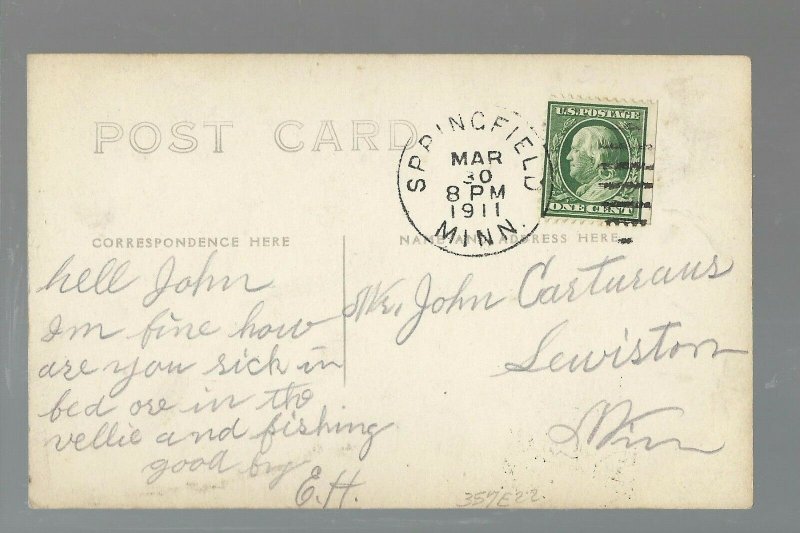 POST CARD
SPRINGFIELD
MAR
30
8 PM
1911
MINN.
U.S. POSTAGE
ONE CENT
CORRESPONDENCE HERE
NAME AND ADDRESS HERE
hell John
Im fine how
are you sick in
bed ore in the
vellie and fishing
good by
E.H.
Mr. John Carturaus
Lewiston
Minn
357E22